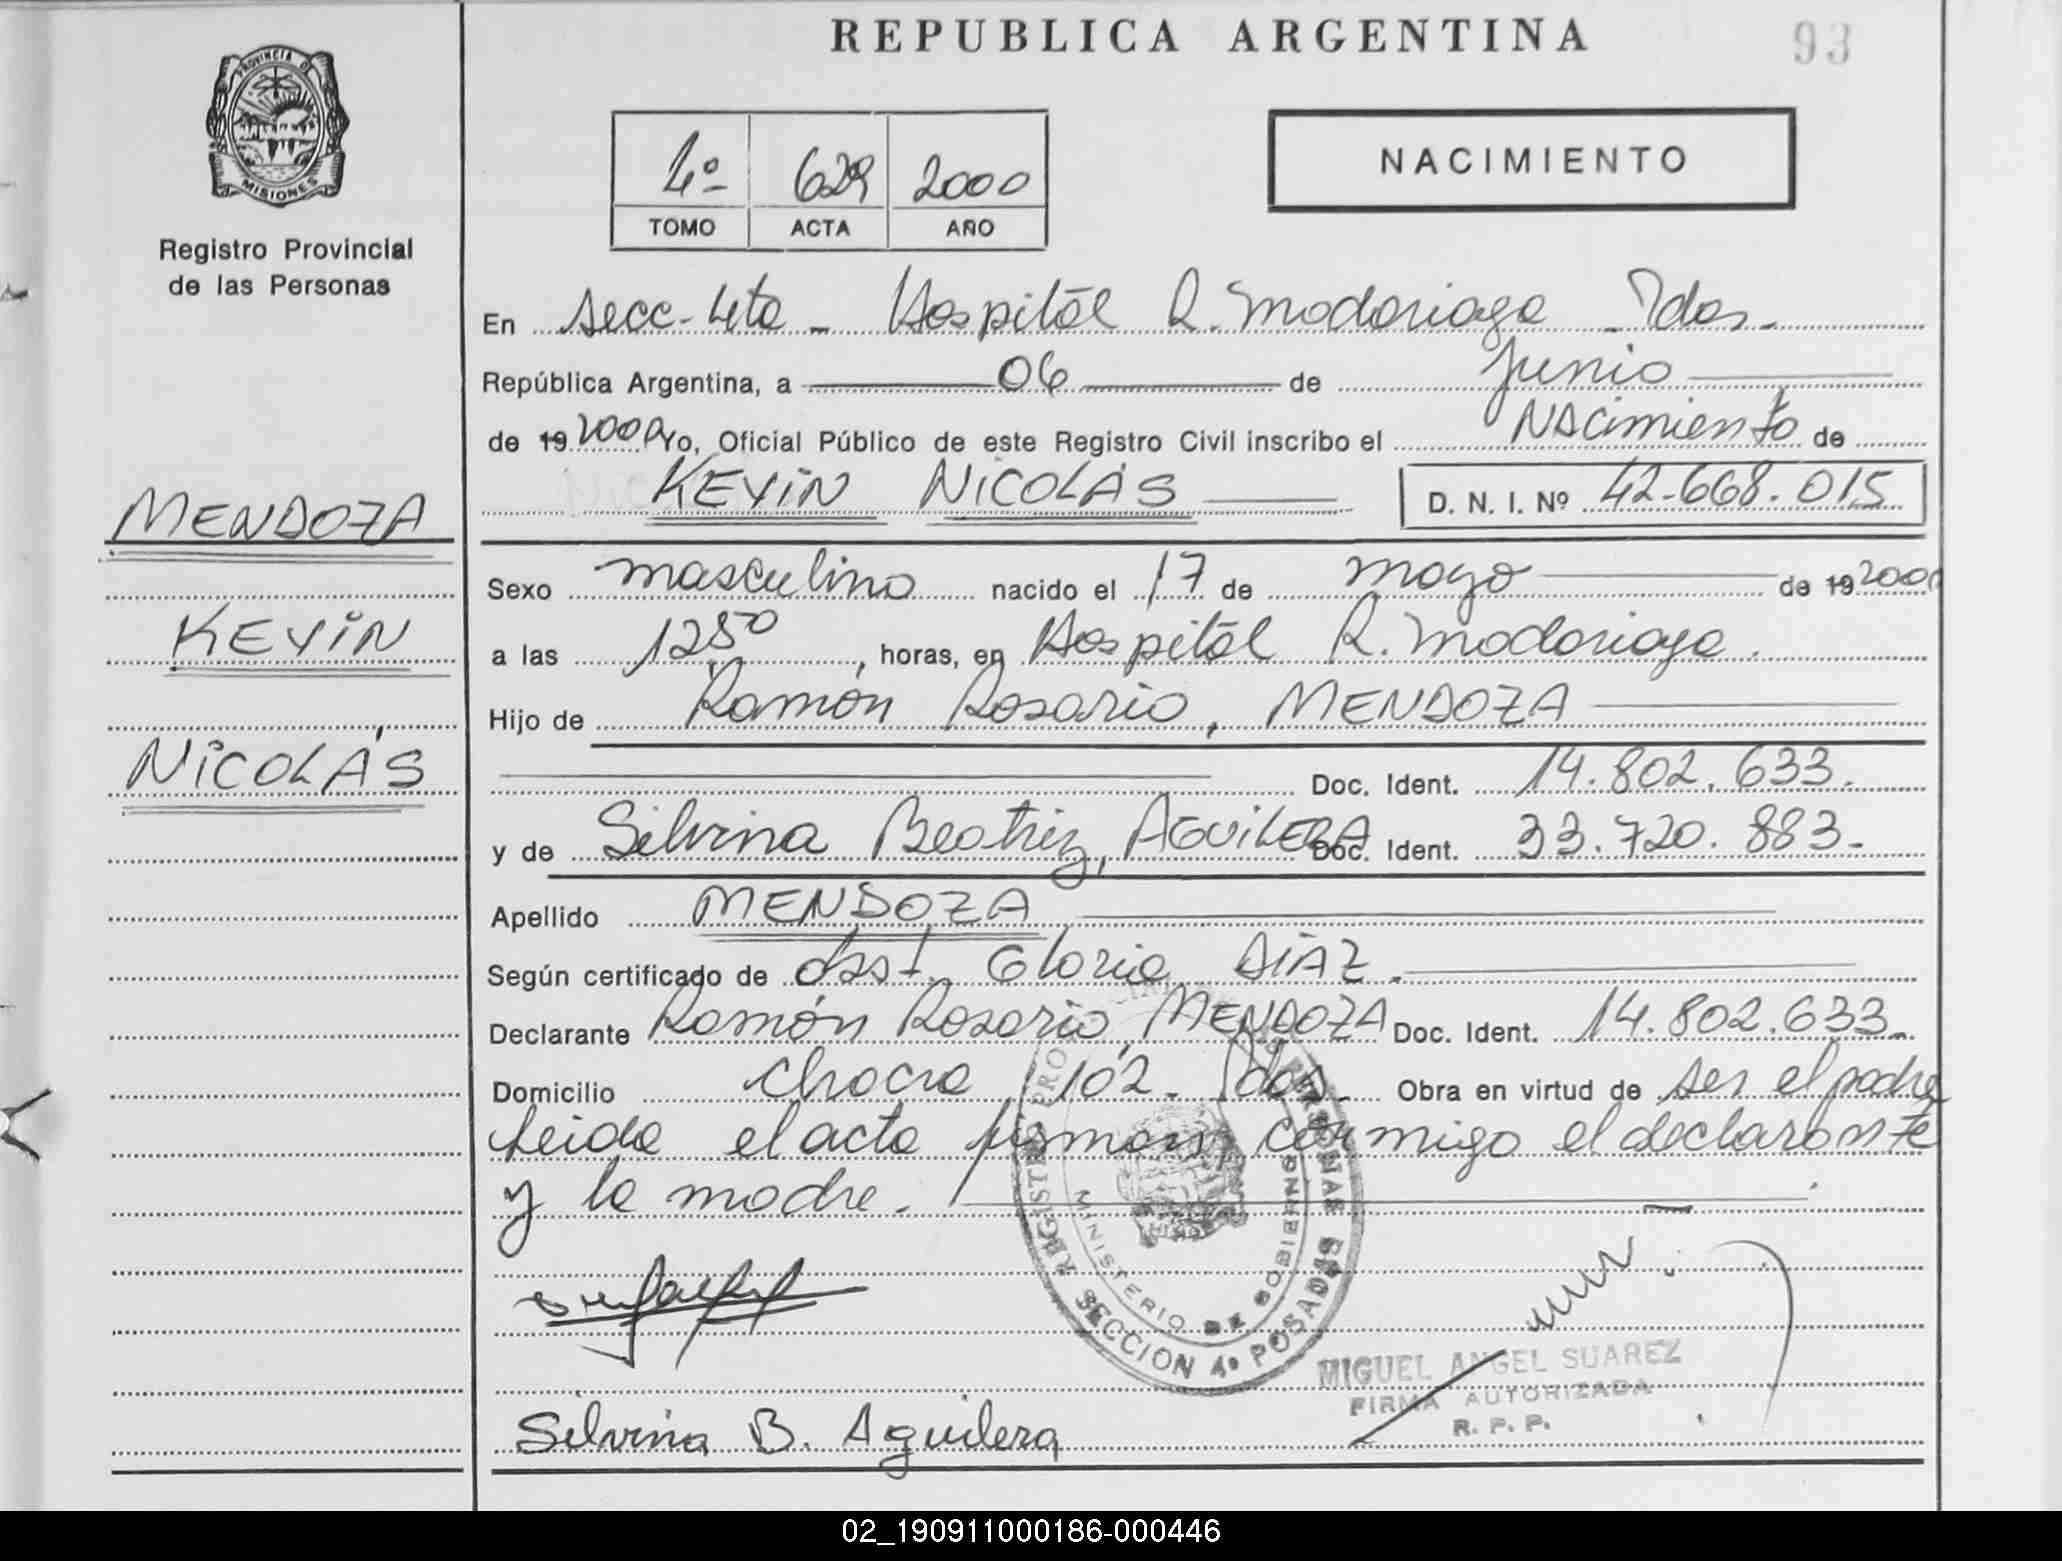 REPUBLICA ARGENTINA
93
PROVINCIA D
MISIONES
Registro Provincial
de las Personas
4º 629 2000
TOMO ACTA AÑO
NACIMIENTO
En Secc. 4ta - Hospital R. Madariaga - Pdas.
República Argentina, a 06 de Junio
de 19 2000 Yo, Oficial Público de este Registro Civil inscribo el NAcimiento de
KEVIN NICOLÁS D. N. I. Nº 42.668.015
MENDOZA
KEVIN
NICOLÁS
Sexo masculino nacido el 17 de mayo de 19 2000
a las 12 50, horas, en Hospital R. Madariaga.
Hijo de Ramón Rosario, MENDOZA
Doc. Ident. 14.802.633.
y de Silvina Beatriz, AGUILERA Doc. Ident. 33.720.883-
Apellido MENDOZA
Según certificado de Obst. Gloria DIAZ.
Declarante Ramón Rosario, MENDOZA Doc. Ident. 14.802.633-
Domicilio Chacra 102 - Pdas. Obra en virtud de ser el padre
Leida el acta firman conmigo el declarante
y la madre.
REGISTRO PRO LAS PERSONAS
MINISTERIO DE GOBIERNO
SECCION 4º POSADAS
MIGUEL ANGEL SUAREZ
FIRMA AUTORIZADA
R. P. P.
Silvina B. Aguilera
02_190911000186-000446